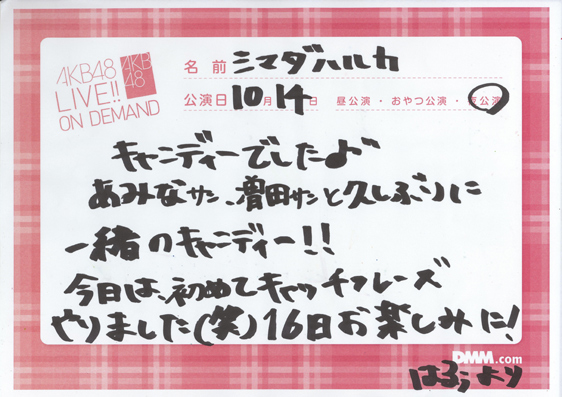 AKB48
LIVE!!
ON DEMAND
AKB
48
名前 シマダハルカ
公演日 10月14日 昼公演・おやつ公演・夜公演
キャンディーでしたよ
あみなサン、増田サンと久しぶりに
一緒のキャンディー!!
今日は、初めてキャッチフレーズ
やりました(笑)16日お楽しみに!
DMM.com
はるぅより